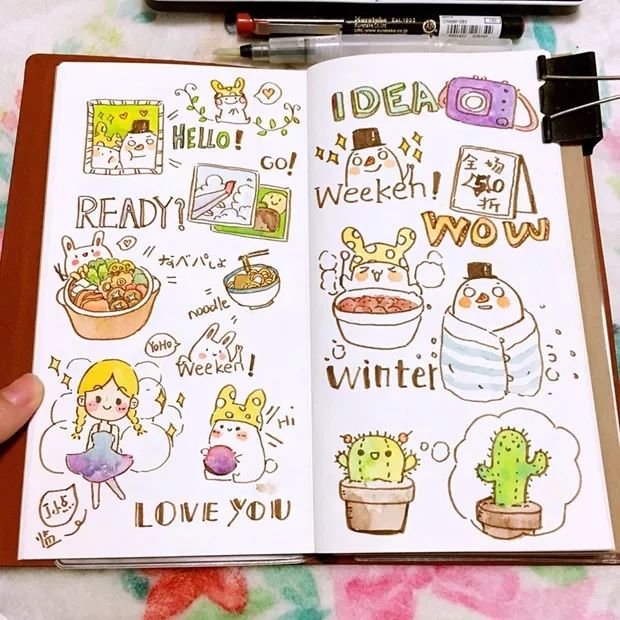 HELLO!
GO!
READY?
なべパしよ
noodle
YoHo
Weeken!
Hi
LOVE YOU
IDEA
Weeken!
全场
50
折
WOW
winter
Kuretake Est.1902